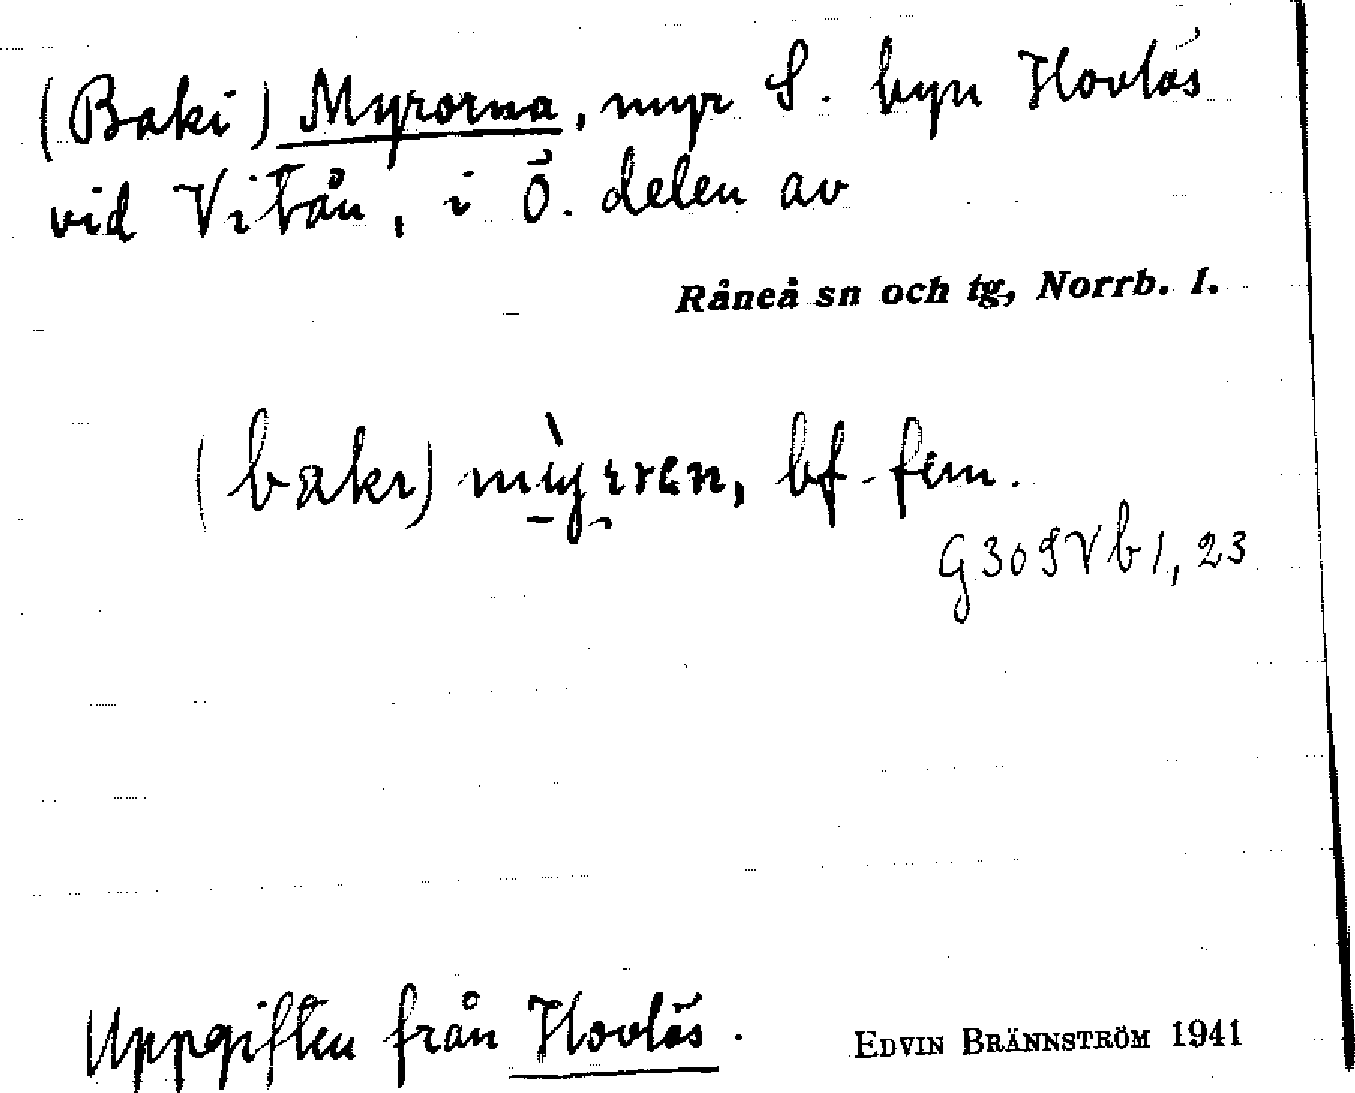 (Baki) Myrorna, myr S. byn Hovlös
vid Vitån, i Ö. delen av
Råneå sn och tg, Norrb. l.
(bakı) mỳrren, bf. fem.
G309Vb1, 23
Uppgiften från Hovlös.
EDVIN BRÄNNSTRÖM 1941